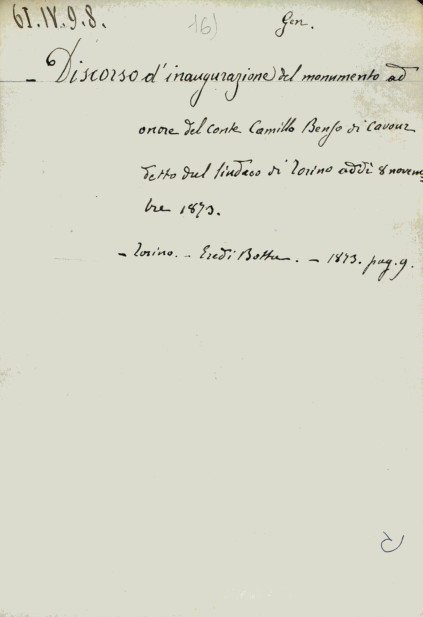 61.IV.9.8. 16) Gen.
- Discorso d'inaugurazione del monumento ad
onore del conte Camillo Benso di Cavour
detto dal sindaco di Torino addì 8 novem-
bre 1873.
- Torino. - Eredi Botta. - 1873. pag. 9.